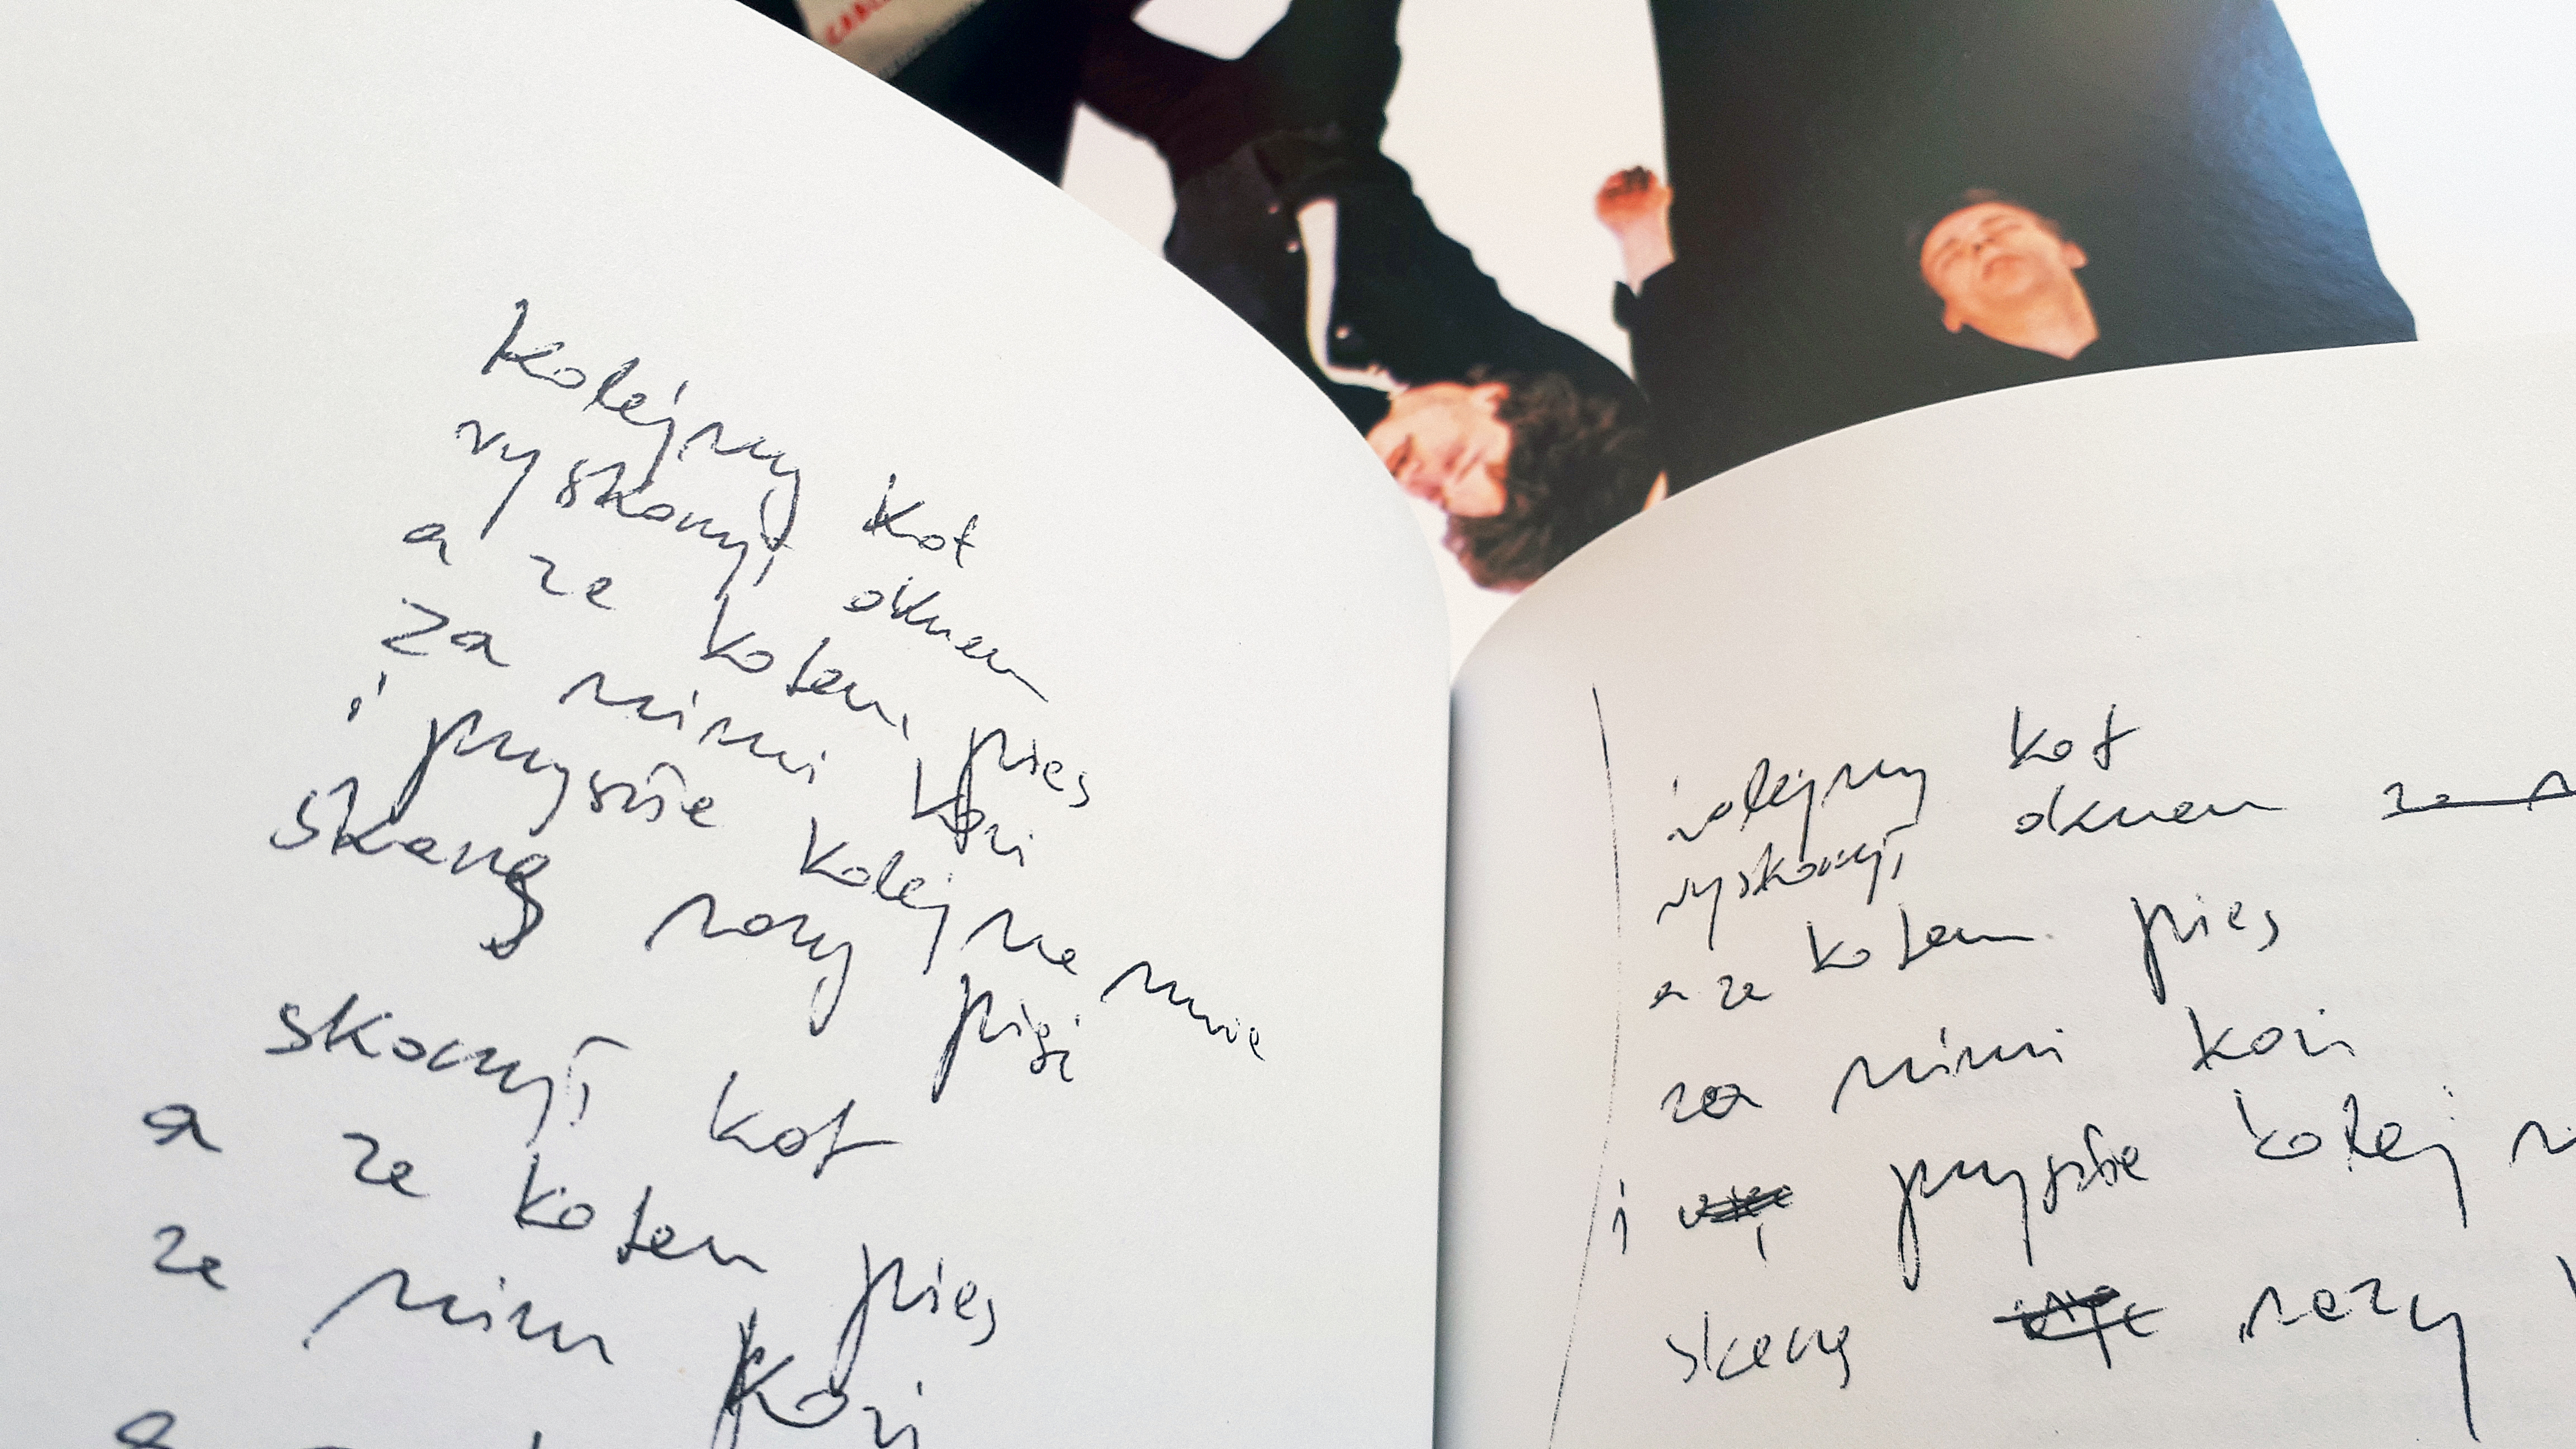 kolejny kot
wyskoczył oknem
a za kotem pies
za nimi koń
i przyszła kolej na mnie
skaczę razy pięć
skoczył kot
a za kotem pies
za nim koń
kolejny kot
wyskoczył oknem
a za kotem pies
za nimi koń
i przyszła kolej
skaczę razy